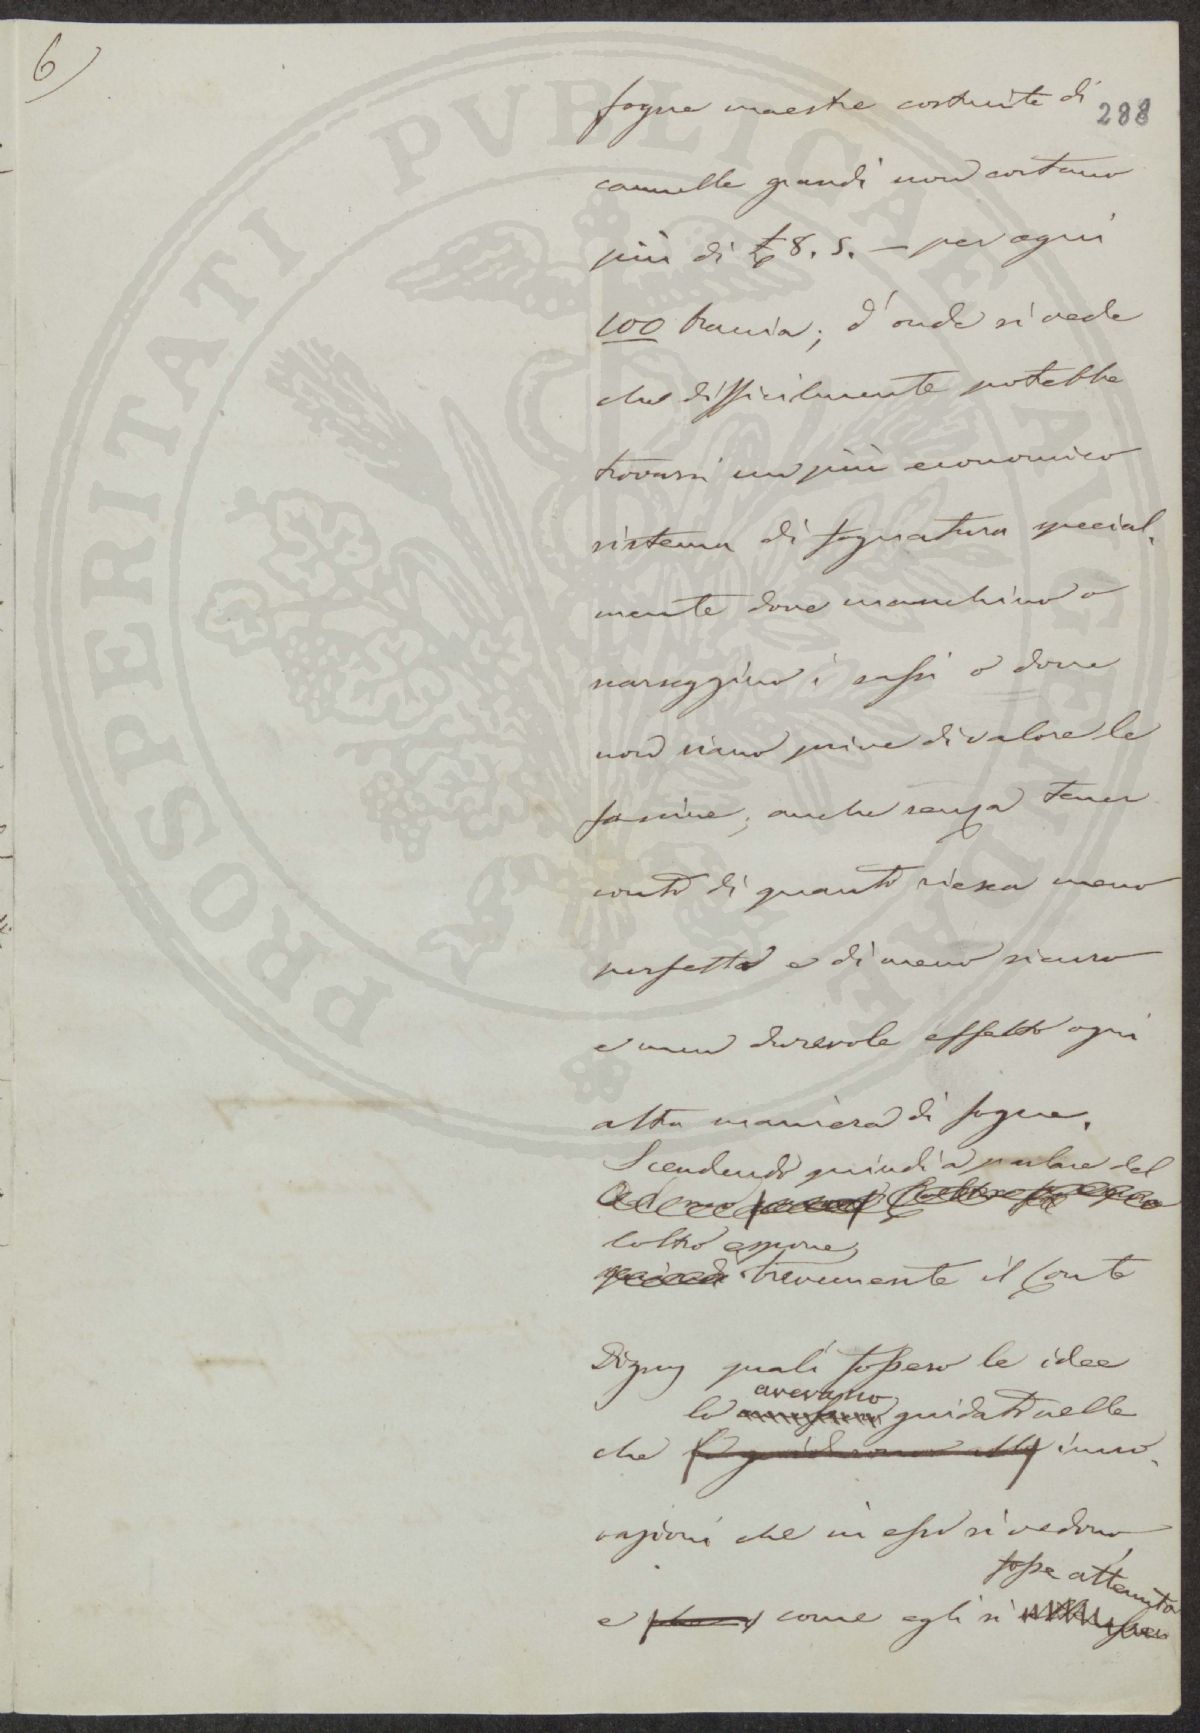 6)
288
fogne maestre costruite di
cannelle grandi non costano
più di £ 8. 5. — per ogni
100 braccia; d'onde si vede
che difficilmente potrebbe
trovarsi un più economico
sistema di fognatura special,
mente dove manchino o
scarseggino i sassi o dove
non siano prive di valore le
fascine; anche senza tener
conto di quanto riesca meno
perfetta e di meno sicuro
e men durevole effetto ogni
altra maniera di fogne.
Scendendo quindi a parlare del
coltro espone
brevemente il Conte
Digny quali fossero le idee
avevano
lo guidato nelle
che inno,
vazioni che in esso si vedono,
fosse attenuto
e come egli si
PROSPERITATI PVBLICAE AVGENDAE